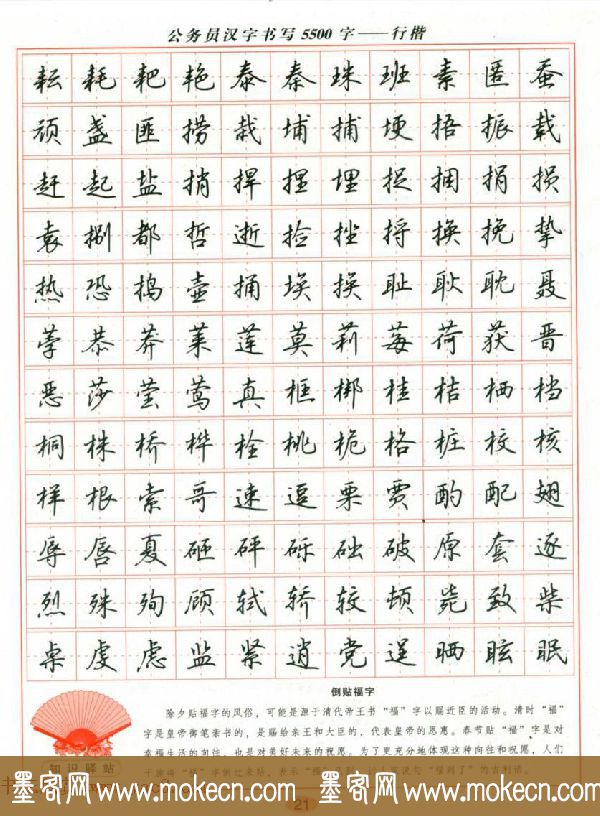 公务员汉字书写5500字——行楷
耘耗耙艳泰秦珠班素匿蚕
顽盏匪捞栽埔捕埂捂振载
赶起盐捎捍捏埋捉捆捐损
袁捌都哲逝捡挫捋换挽挚
热恐捣壶捅埃挨耻耿耽聂
荸恭莽莱莲莫莉莓荷获晋
恶莎莹莺真框梆桂桔栖档
桐株桥桦栓桃桅格桩校核
样根索哥速逗栗贾酌配翅
辱唇夏砸砰砾础破原套逐
烈殊殉顾轼轿较顿毙致柴
桌虔虑监紧逍党逞晒眩眠
倒贴福字
除夕贴福字的风俗，可能是源于清代帝王书“福”字以赐近臣的活动。清时“福”
字是皇帝御笔亲书的，是赐给亲王和大臣的，代表皇帝的恩惠。春节贴“福”字是对
幸福生活的向往，也是对美好未来的祝愿，为了更充分地体现这种向往和祝愿，人们
知识驿站
墨客网 www.mokecn.com 墨客网 www.mokecn.com
21